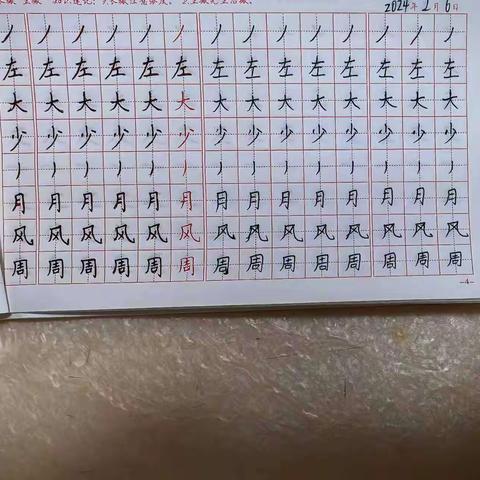 2.竖撇先竖后撇。 2024年2月6日
丿丿丿丿丿丿丿丿丿丿丿丿丿丿
左左左左左左左左左左左左左左
大大大大大大大大大大大大大大
少少少少少少少少少少少少少少
丿丿丿丿丿丿丿丿丿丿丿丿丿丿
月月月月月月月月月月月月月月
风风风风风风风风风风风风风风
周周周周周周周周周周周周周周
—4—